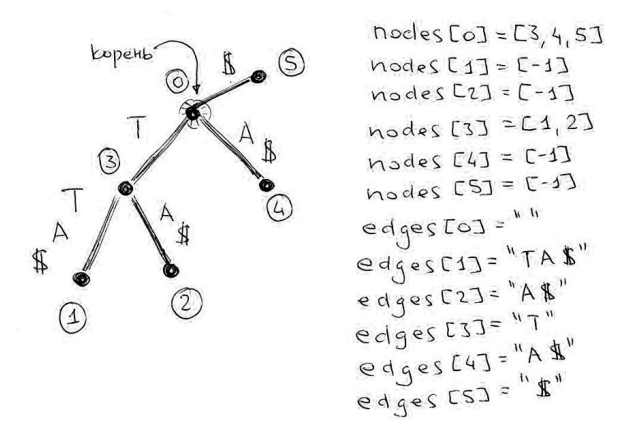 корень
0
$
5
T
A
$
3
4
T
A
$
A
$
1
2
nodes[0] = [3,4,5]
nodes[1] = [-1]
nodes[2] = [-1]
nodes[3] = [1,2]
nodes[4] = [-1]
nodes[5] = [-1]
edges[0] = " "
edges[1] = "TA$"
edges[2] = "A$"
edges[3] = "T"
edges[4] = "A$"
edges[5] = "$"